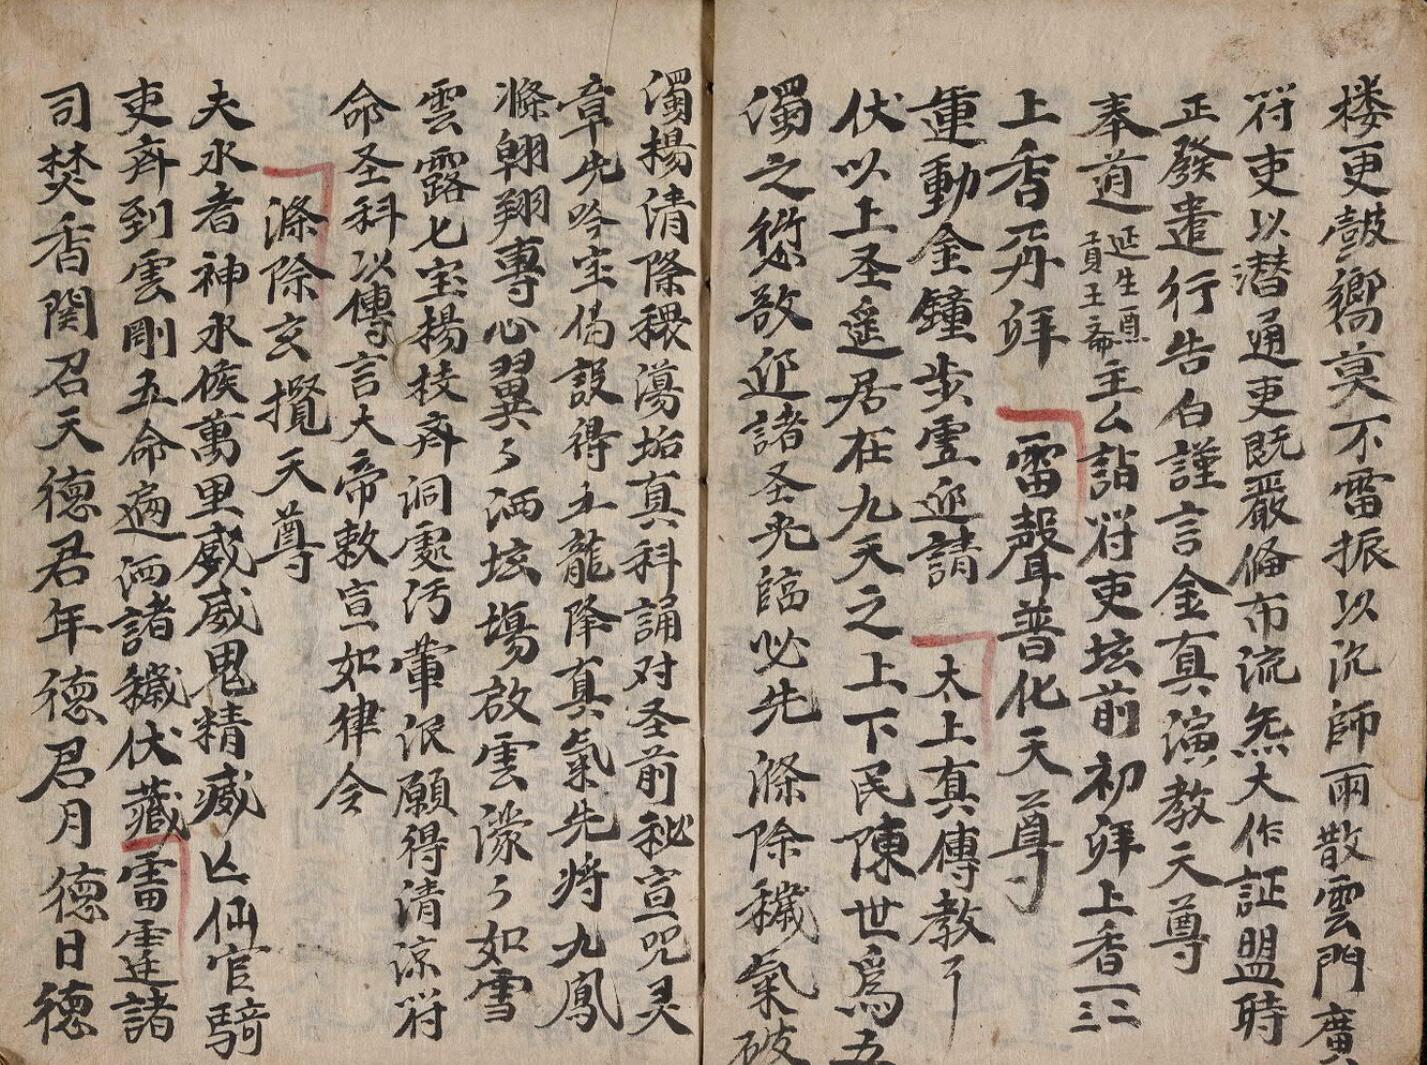 楼更鼓嚮莫不雷振以沉師雨散雲門廣
符吏以潜通吏既嚴俻布流炁大作証盟時
正發遣行告白謹言金真演教天尊
奉道延生酉貢王斋主么詣符吏坛前初拜上香一二三
上香再拜 雷聲普化天尊
運動金鐘步雲迎請 太上真傳教了
伏以上圣遥居在九天之上下民陳世爲五
濁之愆欲迎諸圣光臨必先滌除穢氣破
濁楊清除穢蕩垢真科誦对圣前秘宣咒灵
章先吟宝偈設得五龍降真氣先将九鳳
滌翱翔專心翼々洒坛塲啟雲濛々如雪
雲露七宝楊枝斉洞處污葷泯願得清涼符
命圣科以傳言大帝敕宣如律令
滌除玄攬天尊
夫水者神水候萬里威威鬼精威亡仙官騎
吏斉到雲剛五命遍洒諸穢伏藏雷霆諸
司焚香関召天德君年德君月德日德